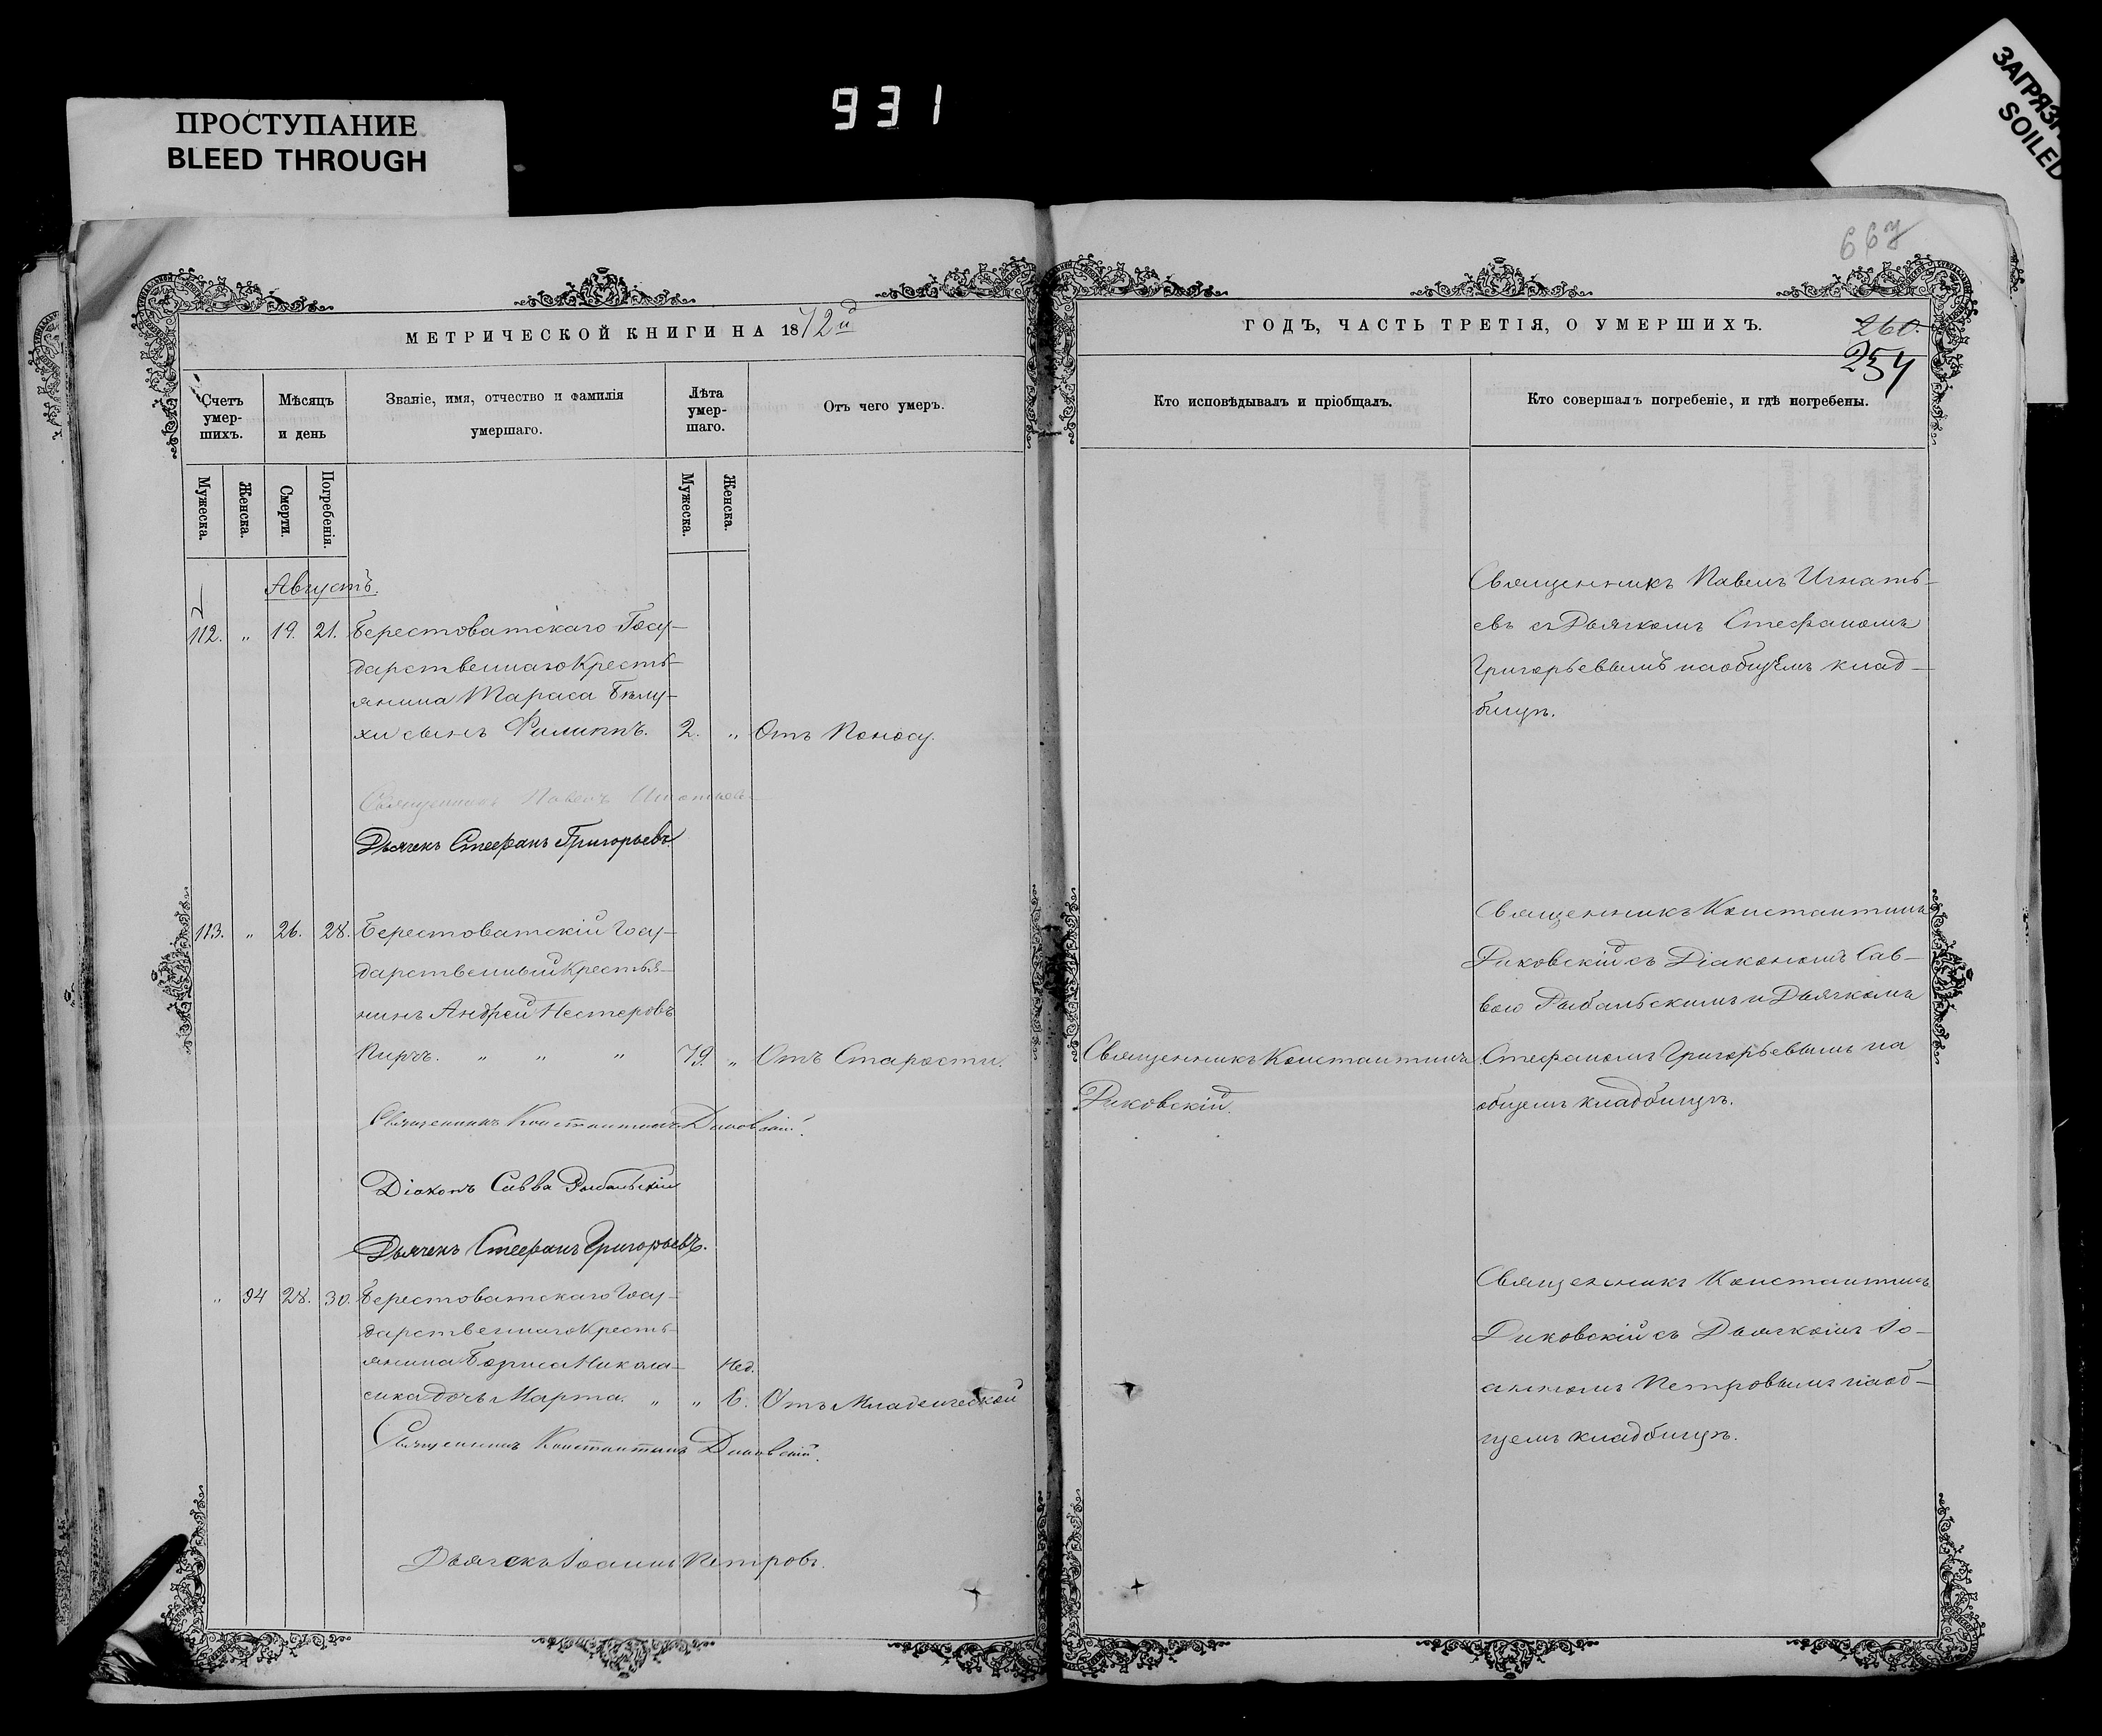 931
ПРОСТУПАНИЕ
BLEED THROUGH
ЗАГРЯЗН
SOILED
667
МЕТРИЧЕСКОЙ КНИГИ НА 1872й
ГОДЪ, ЧАСТЬ ТРЕТІЯ, О УМЕРШИХЪ.
260.
254
Счетъ умер-шихъ.
Мѣсяцъ и день
Званіе, имя, отчество и фамилія умершаго.
Лѣта умер-шаго.
Отъ чего умеръ.
Кто исповѣдывалъ и пріобщалъ.
Кто совершалъ погребеніе, и гдѣ погребены.
Мужеска.
Женска.
Смерти.
Погребенія.
Мужеска.
Женска.
Августъ.
112. „ 19. 21. Берестоватскаго Госу-
дарственнаго Кресть-
янина Тараса Бѣлу-
хи сынъ Филиппъ. 2. „ Отъ Поносу.
Священникъ Павелъ Игнать-
евъ съ Дьячкомъ Стефаномъ
Григорьевымъ наобщемъ клад-
бищѣ.
Священникъ Павелъ Игнатьевъ
Дьячекъ Стефанъ Григорьевъ
113. „ 26. 28. Берестоватскій Госу-
дарственный Крестья-
нинъ Андрей Нестеровъ
Пирчъ. „ „ „ 79. „ Отъ Старости.
Священникъ Константинъ
Диковскій.
Священникъ Константинъ
Диковскій съ Діакономъ Сав-
вою Рыбальскимъ и Дьячкомъ
Стефаномъ Григорьевымъ на
общемъ кладбищѣ.
Священникъ Константинъ Диковскій.
Діаконъ Савва Рыбальскій
Дьячекъ Стефанъ Григорьевъ.
„ 94 28. 30. Берестоватскаго Госу-
дарственнаго Кресть-
янина Бориса Никола-
енка дочь Марта. „ „ Нед. 6. Отъ Младенческой
Священникъ Константинъ
Диковскій съ Дьячкомъ Іо-
анномъ Петровымъ наоб-
щемъ кладбищѣ.
Священникъ Константинъ Диковскій.
Дьячекъ Іоаннъ Петровъ.